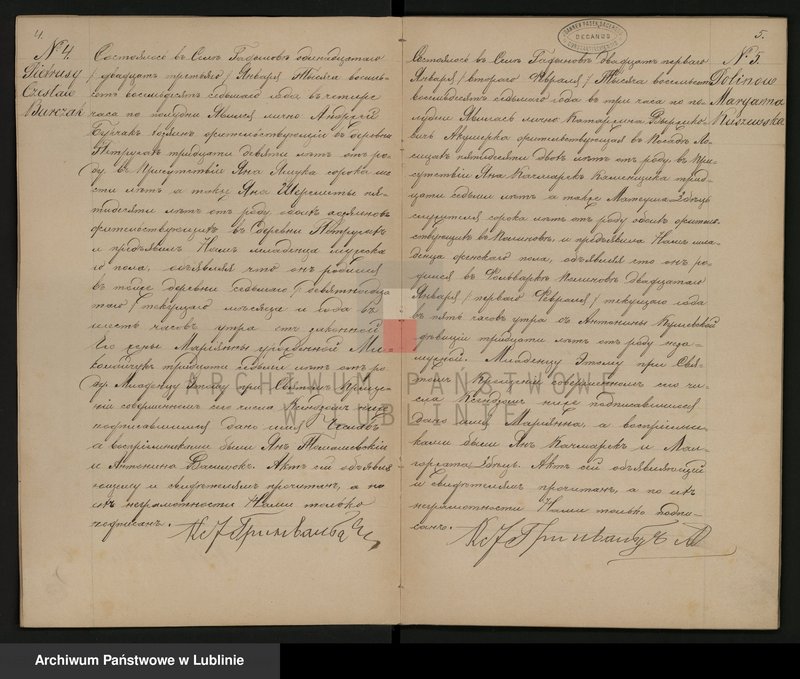 4.
№ 4.
Pietrusy
Czesław
Barczak
Состоялось въ Селѣ
/двадцать третьяго/ Января Тысяча восемь-
сотъ восемьдесятъ седьмаго года въ четыре
часа по полудни Явился лично Андрей
въ деревни
тридцати девяти лѣтъ отъ ро-
ду, въ Присутствіи Яна сорока
сти лѣтъ а также Яна пя-
тидесяти лѣтъ отъ роду обоихъ
жительствующихъ въ Деревни
и предъявилъ Намъ младенца мужска-
го пола, объявляя что онъ родился
въ той же деревни седьмаго / девятнадца
таго / текущаго мѣсяца и года въ
шесть часовъ утра отъ законной
его жены Маріанны урожденной Ми-
тридцати седьми лѣтъ отъ ро-
ду. Младенцу этому при Святомъ Креще-
ніи совершенномъ сего числа Ксендзомъ ниже
подписавшимся дано имя Чеславъ
а воспріемниками были Янъ
и Антонина Актъ сей объявля
ющему и свидѣтелямъ прочитанъ, а по
ихъ неграмотности Нами только
подписанъ.
5.
DECANUS
№ 5.
Polinow
Maryanna
Kuszewska
Состоялось въ Селѣ Двадцать перваго
Января /втораго Февраля/ Тысяча восемьсотъ
восемьдесятъ седьмаго года въ три часа по по-
лудни Явилась лично Катаржина
Акушерка жительствующая въ Посадѣ Ло-
сицахъ пятидесяти двохъ лѣтъ отъ роду, въ При-
сутствіи Яна Качмарекъ Каменщика трид-
цати седьми лѣтъ а также Матеуша
служителя сорока лѣтъ отъ роду обоихъ житель-
ствующихъ въ Полиновѣ, и предъявила Намъ мла-
денца женскаго пола, объявляя что онъ ро-
дился въ Фольваркѣ Полиновъ Двадцатаго
Января /перваго Февраля/ текущаго года
въ пять часовъ утра отъ Антонины Кушевской
дѣвицы тридцати лѣтъ отъ роду неза-
мужной. Младенцу Этому при Свя-
томъ Крещеніи совершенномъ сего чи-
сла Ксендзомъ ниже подписавшимся
дано имя Маріанна, а воспріемни-
ками были Янъ Качмарекъ и Мал-
горжата Актъ сей объявляющей
и свидѣтелямъ прочитанъ, а по ихъ
неграмотности Нами только подпи-
санъ.
ARCHIWUM PAŃSTWOWE
W LUBLINIE
Archiwum Państwowe w Lublinie